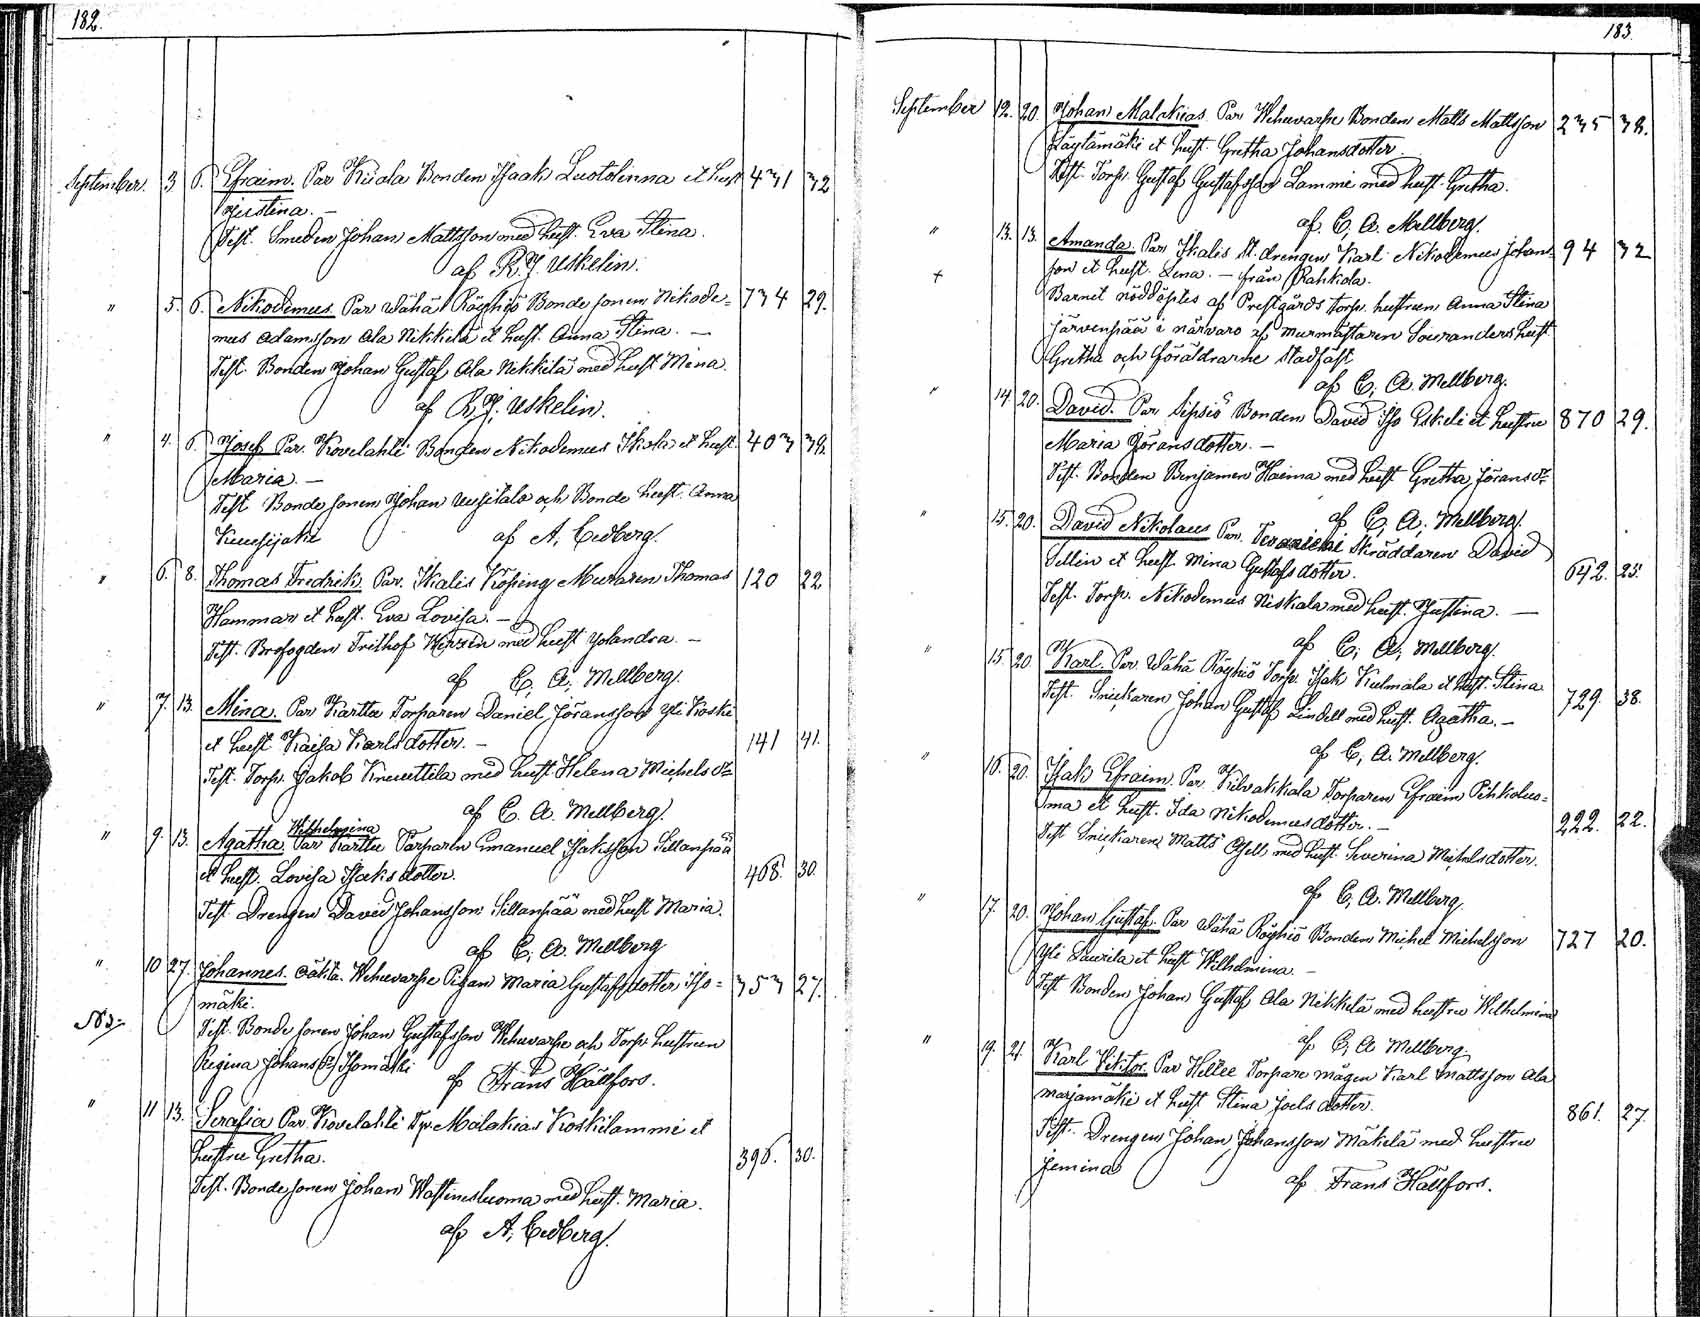 182.
September. 3 6. Efraim. Par Kiiala Bonden Isaak Luotolinna et hust 431 32
Justina. —
Test. Smeden Johan Mattsson med hust. Eva Stina.
af R. J. Uskelin.
" 5. 6. Nikodemus. Par Wähä Röyhiö Bonde sonen Nikode= 734 29.
mus Adamsson Ala Nikkilä et hust. Anna Stina. —
Test. Bonden Johan Gustaf Ala Nikkilä med hust Mina.
af R. J. Uskelin.
" 4. 6. Josef Par. Kovelahti Bonden Nikodemus Ikola et hust. 403 38.
Maria. —
Test. Bonde sonen Johan Uusitalo och Bonde hust. Anna
af A. Cedberg.
" 6. 8. Thomas Fredrik. Par. Ikalis Köping Muraren Thomas 120 22
Hammar et hust. Eva Lovisa. —
Test. Brofogden Frithof med hust Yolandra. —
af C. A. Mellberg.
" 7. 13. Mina. Par Karttu Torparen Daniel Jöransson Yli Koski
et hust Kaisa Karlsdotter. — 141 41.
Test. Torp. Jakob Knuuttila med hust Helena Michelsdr
af C. A. Mellberg.
Wilhelmina
" 9. 13. Agatha. Par Karttu Torparen Emanuel Isaksson Sillanpää
et hust. Lovisa Isaksdotter. 468. 30.
Test. Drengen David Johansson Sillanpää med hust Maria.
af C. A. Mellberg
" 10 27. Johannes. oäkta. Wehuvarpe Pigan Maria Gustafsdotter Iso= 353 27.
mäki.
Test. Bonde sonen Johan Gustafsson Wehuvarpe och Torp. hustrun
Regina Johansdr Isomäki
af Frans Hällfors.
" 11 13. Serafia Par. Kovelahti Tp. Malakias Koskilammi et
hustru Gretha. 396. 30.
Test. Bonde sonen Johan Wastinesluoma med hust. Maria.
af A. Cedberg.
183.
September 12. 20. Johan Malakias. Par Wehuvarpe Bonden Matts Mattsson 235 38.
Käytämäki et hust. Gretha Johansdotter.
Test. Torp. Gustaf Gustafsson Lammi med hust. Gretha.
af C. A. Mellberg.
" 13. 13. Amanda. Par Ikalis St. drengen Karl Nikodemus Johans= 94 32
+ son et hust. Lena. — från Rahkola.
Barnet nöddöptes af Prestgårds torp. hustrun Anna Stina
Järvenpää i närvaro af murmästaren Souranders hust
Gretha och föräldrarne stadfäst
af C. A. Mellberg.
" 14 20. David. Par Sipsiö Bonden David Iso Eskeli et hustru 870 29.
Maria Göransdotter. —
Test. Bonden Benjamin Haima med hust Gretha Jöransdr
af C. A. Mellberg.
" 15. 20. David Nikolaus Par. Skräddaren David
Sellin et hust. Mina Gustafsdotter. 642. 25.
Test. Torp. Nikodemus Niskala med hust. Justina. —
af C. A. Mellberg.
" 15. 20 Karl. Par. Wähä Röyhiö Torp. Isak Kulmala et hust. Stina
Test. Snickaren Johan Gustaf Lindell med hust. Agatha. — 729. 38.
af C. A. Mellberg.
" 16. 20. Isak Efraim. Par. Kilvakkala Torparen Efraim Pihkoluo=
ma et hust. Ida Nikodemusdotter. — 222. 22.
Test Snickaren Matts med hust. Severina Michelsdotter.
af C. A. Mellberg.
" 17. 20. Johan Gustaf. Par Wähä Röyhiö Bonden Michel Michelsson 727 20.
Yli Laurila et hust Wilhelmina. —
Test Bonden Johan Gustaf Ala Nikkilä med hustru Wilhelmina
af C. A. Mellberg
" 19. 21. Karl Viktor. Par Hellee Torpare mågen Karl Mattsson Ala
marjamäki et hust Stina Joelsdotter. 861. 27.
Test. Drengen Johan Johansson Mäkelä med hustru
Jemina
af Frans Hällfors.